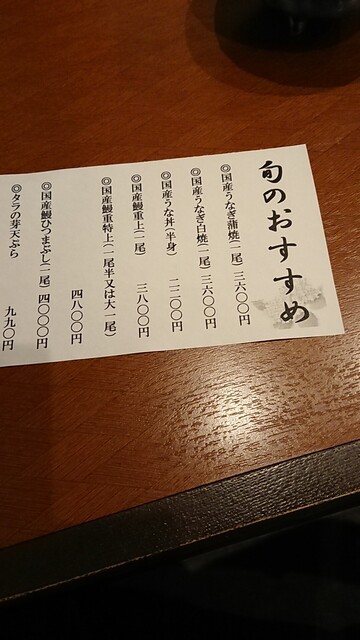 旬のおすすめ
◎国産うなぎ蒲焼(一尾)三六〇〇円
◎国産うなぎ白焼(一尾)三六〇〇円
◎国産うな丼(半身) 二二〇〇円
◎国産鰻重上(一尾) 三八〇〇円
◎国産鰻重特上(一尾半又は大一尾)
四八〇〇円
◎国産鰻ひつまぶし(一尾)四〇〇〇円
◎タラの芽天ぷら 九九〇円